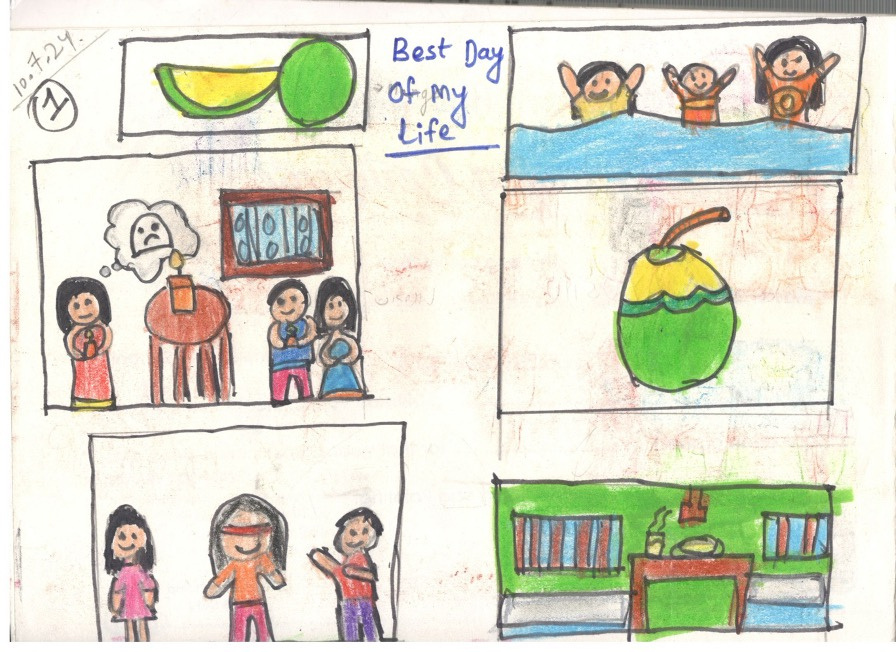 10.7.24.
1
Best Day
Of My
Life